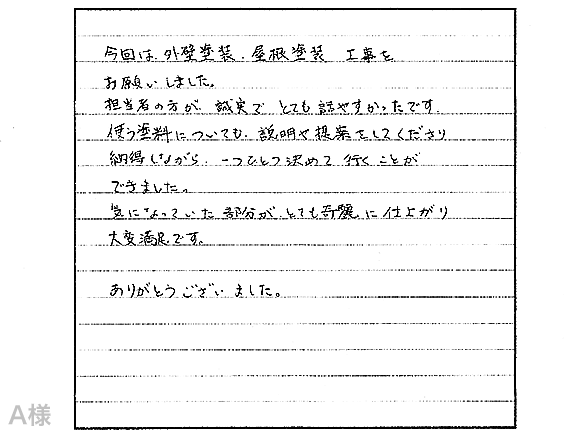 今回は、外壁塗装、屋根塗装 工事を
お願いしました。
担当者の方が、誠実で とても話やすかったです。
使う塗料についても、説明や提案をしてくださり
納得しながら、一つひとつ決めて 行くことが
できました。
気になっていた 部分が、とても綺麗に 仕上がり
大変満足です。
ありがとうございました。
A様